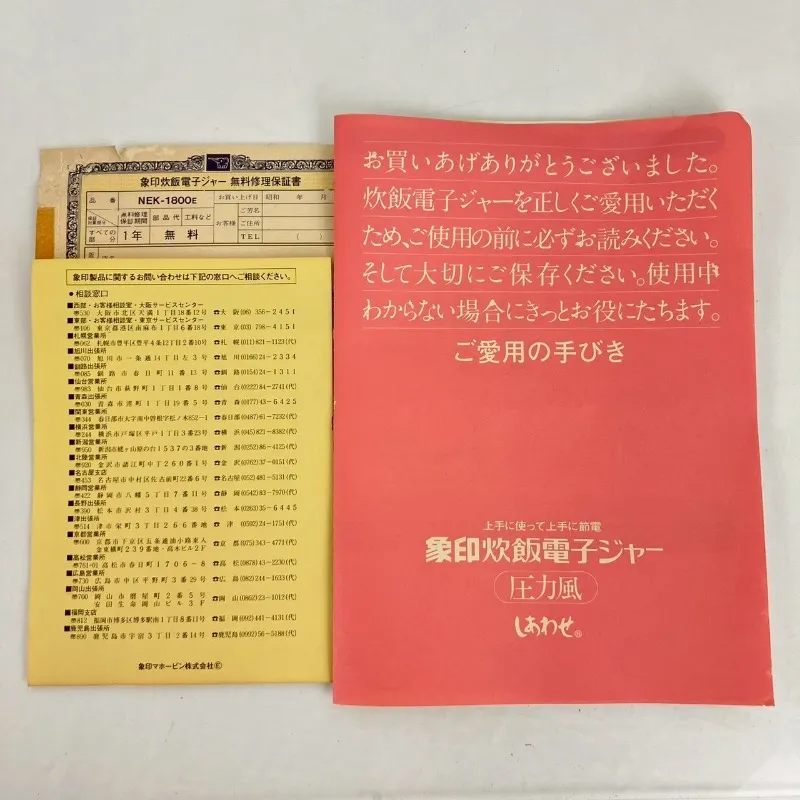 象印炊飯電子ジャー 無料修理保証書
品番 NEK-1800E お買い上げ日 昭和 年 月
保証対象部分 無料修理保証期間 部品代 工料など お客様 ご芳名
ご住所
すべての部分 1年 無料 TEL ( )
象印製品に関するお問い合わせは下記の窓口へご相談ください。
●相談窓口
■西部・お客様相談室・大阪サービスセンター
〒530 大阪市北区天満1丁目38番12号 ☎大 阪(06) 356-2451
■東部・お客様相談室・東京サービスセンター
〒106 東京都港区南麻布1丁目6番18号 ☎東 京(03) 798-4151
■札幌営業所
〒062 札幌市豊平区豊平4条12丁目2番10号 ☎札 幌(011)821-1123(代)
■旭川出張所
〒070 旭川市一条通14丁目左3号 ☎旭 川(0166)24-2334
■釧路出張所
〒085 釧路市春日町11番13号 ☎釧 路(0154)24-1311
■仙台営業所
〒983 仙台市萩野町1丁目1番8号 ☎仙 台(0222)84-2741(代)
■青森出張所
〒030 青森市港町1丁目19番5号 ☎青 森(0177)43-6425
■関東営業所
〒344 春日部市大字南中曽根字松ノ木852-1 ☎春日部(0487)61-7232(代)
■横浜営業所
〒244 横浜市戸塚区平戸1丁目3番23号 ☎横 浜(045)821-8382(代)
■新潟営業所
〒950 新潟市姥ヶ山原の台1537の3番地 ☎新 潟(0252)86-4125(代)
■北陸営業所
〒920 金沢市諸江町中丁260番1号 ☎金 沢(0762)37-0151(代)
■名古屋支店
〒453 名古屋市中村区佐古前町22番6号 ☎名古屋(052)481-5131(代)
■静岡営業所
〒422 静岡市八幡5丁目7番11号 ☎静 岡(0542)83-7970(代)
■長野出張所
〒390 松本市沢村3丁目4番38号 ☎松 本(0263)35-6445
■津出張所
〒514 津市栄町3丁目266番地 ☎津(0592)24-1751(代)
■京都営業所
〒600 京都市下京区五条通油小路東入 ☎京 都(075)343-4771(代)
金東横町239番地・高木ビル2F
■高松営業所
〒761-01 高松市春日町1706-8 ☎高 松(0878)43-2230(代)
■広島営業所
〒730 広島市中区平野町3番39号 ☎広 島(082)244-1633(代)
■岡山出張所
〒700 岡山市磨屋町2番5号 ☎岡 山(0862)23-1012(代)
安田生命岡山ビル3F
■福岡支店
〒812 福岡市博多区博多駅南1丁目8番11号 ☎福 岡(092)441-4131(代)
■鹿児島出張所
〒890 鹿児島市宇宿3丁目2番14号 ☎鹿児島(0992)56-5188(代)
象印マホービン株式会社Ⓔ
お買いあげありがとうございました。
炊飯電子ジャーを正しくご愛用いただく
ため、ご使用の前に必ずお読みください。
そして大切にご保存ください。使用中
わからない場合にきっとお役にたちます。
ご愛用の手びき
上手に使って上手に節電
象印炊飯電子ジャー
圧力風
しあわせ®